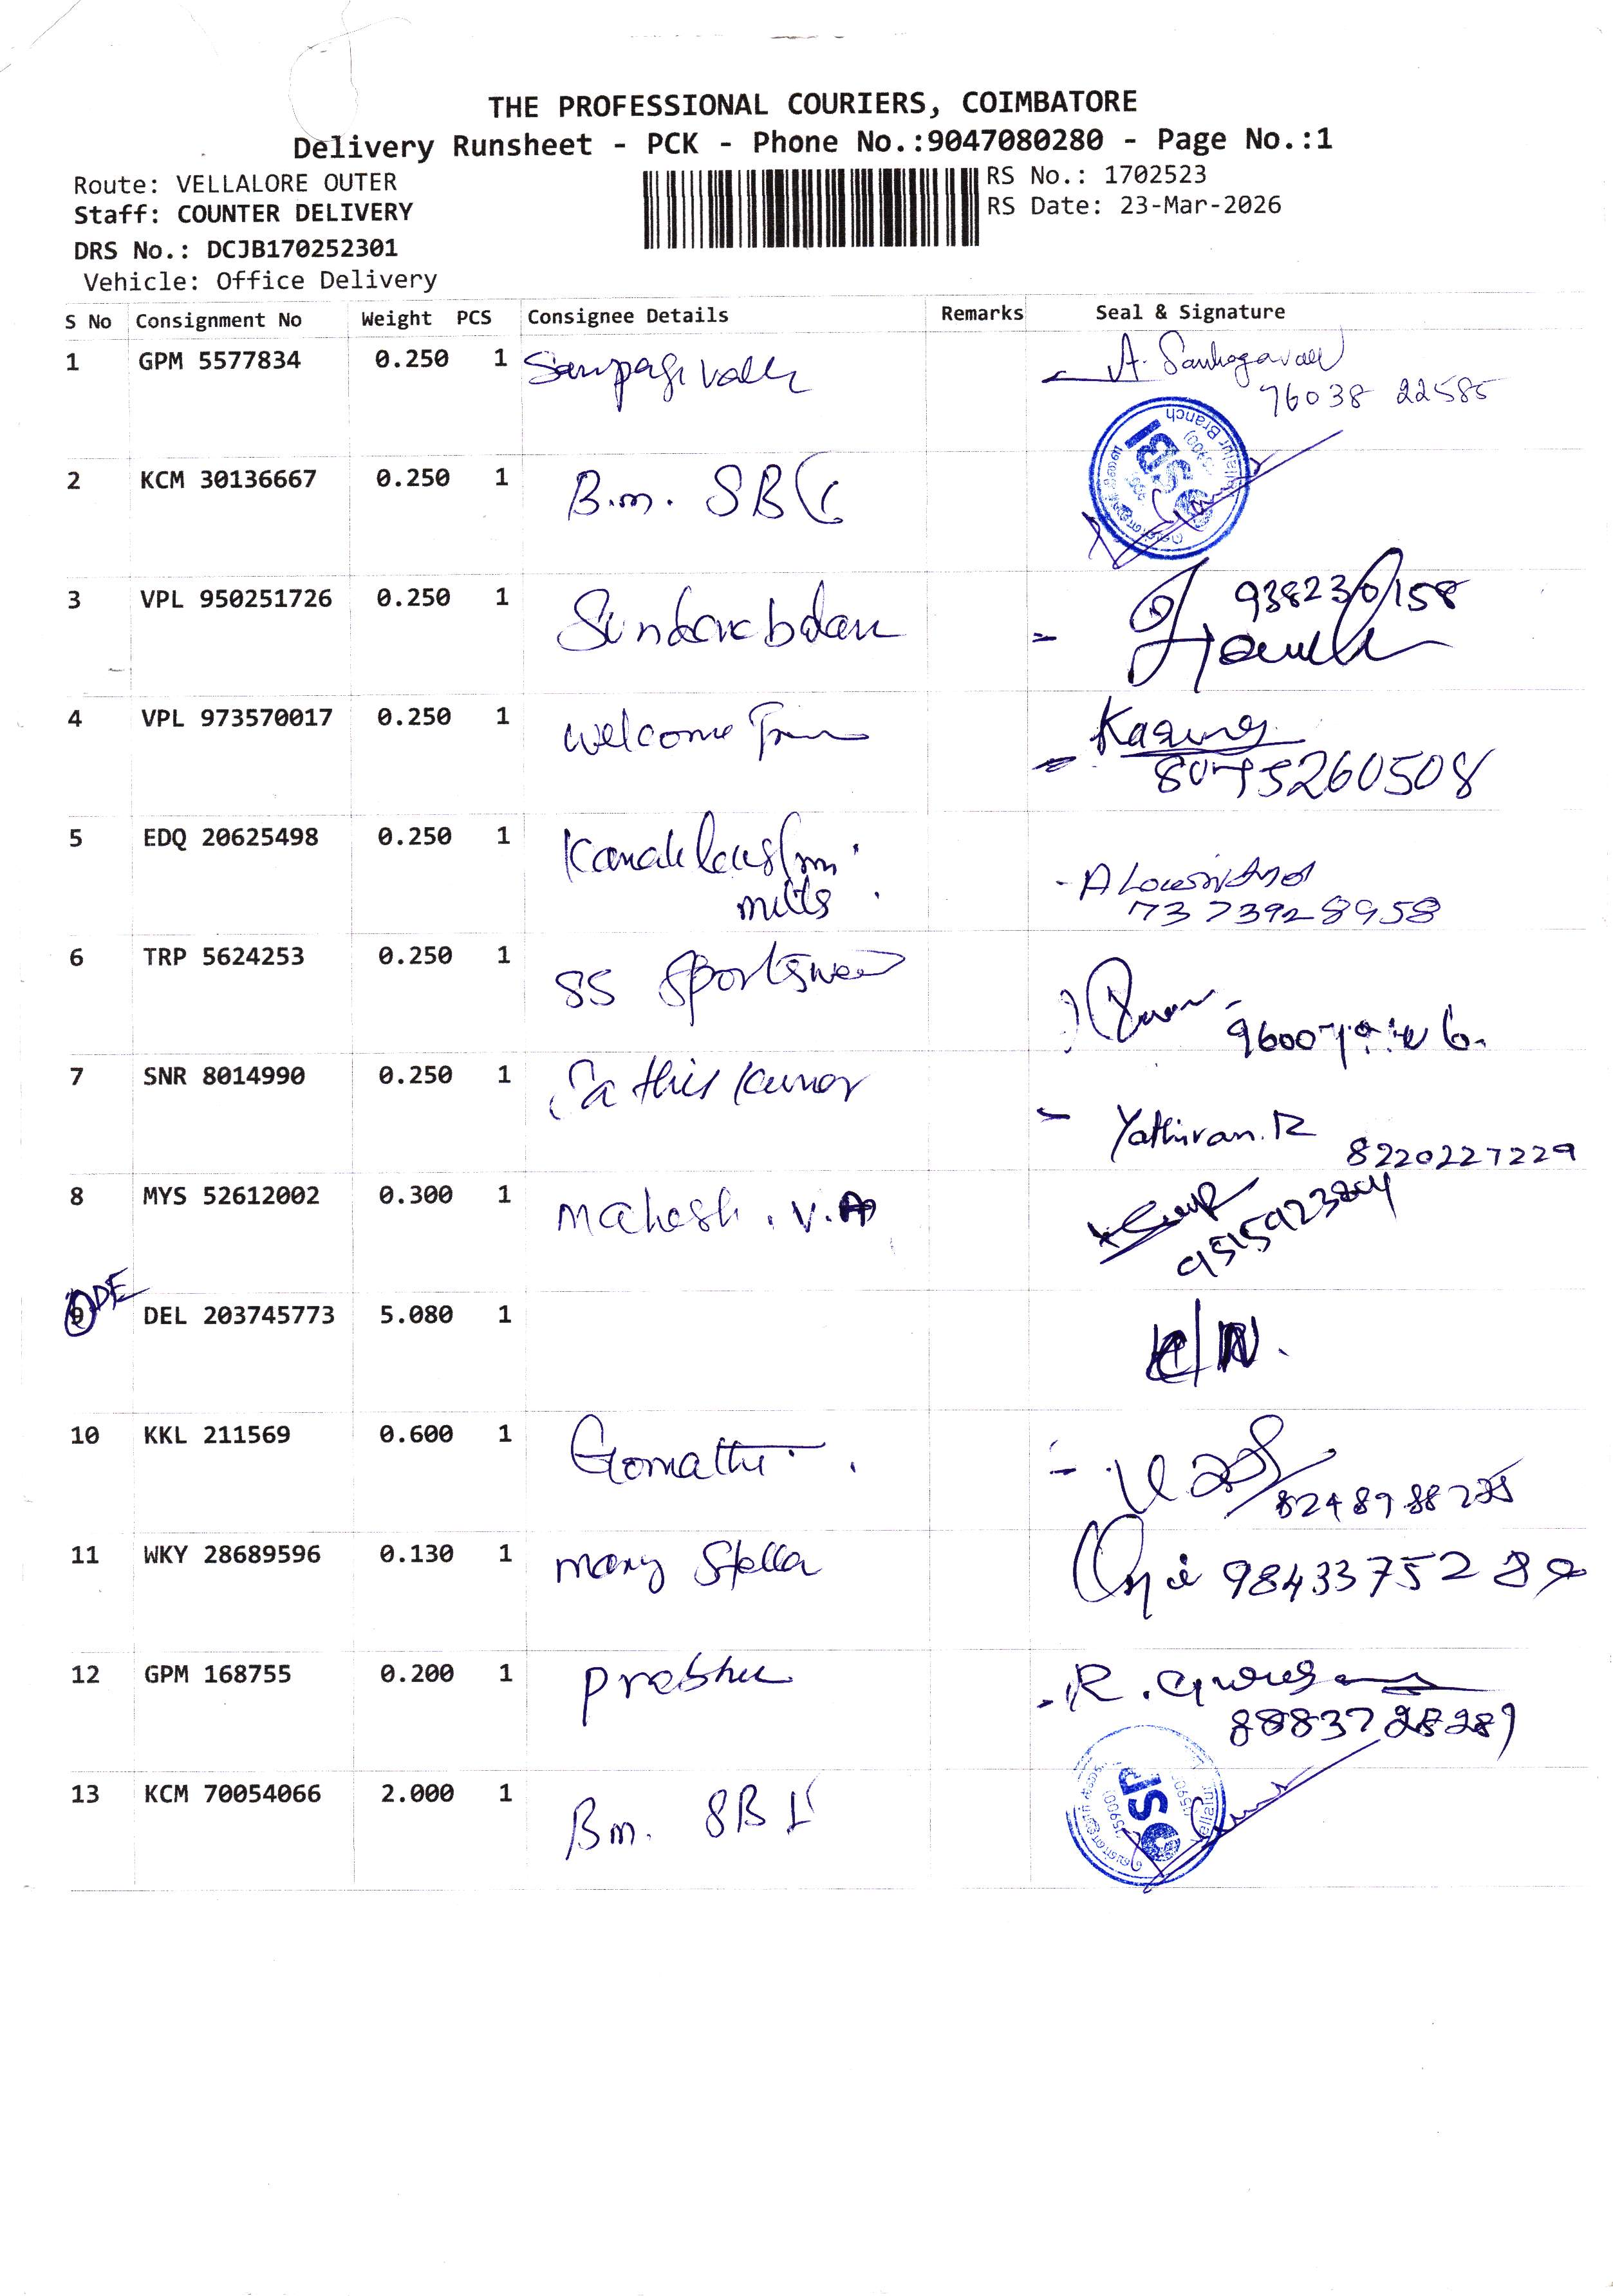 THE PROFESSIONAL COURIERS, COIMBATORE
Delivery Runsheet - PCK - Phone No.:9047080280 - Page No.:1
Route: VELLALORE OUTER
RS No.: 1702523
Staff: COUNTER DELIVERY
RS Date: 23-Mar-2026
DRS No.: DCJB170252301
Vehicle: Office Delivery
S No Consignment No Weight PCS Consignee Details Remarks Seal & Signature
1 GPM 5577834 0.250 1 Sanpagivalli A.
76038 22585
2 KCM 30136667 0.250 1 B.m. SBI
SBI
Branch
3 VPL 950251726 0.250 1
4 VPL 973570017 0.250 1 welcome
8075260508
5 EDQ 20625498 0.250 1
mills
7373928958
6 TRP 5624253 0.250 1 SS Sportswear
7 SNR 8014990 0.250 1 Sathis Kumar
Yathivan.R
8220227229
8 MYS 52612002 0.300 1 Mahesh. V.A
9 DEL 203745773 5.080 1
10 KKL 211569 0.600 1 Gomathi
11 WKY 28689596 0.130 1 mary Stella 9843375289
12 GPM 168755 0.200 1 Prabhu R.
8883728289
13 KCM 70054066 2.000 1 Bm. SBI